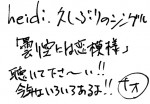 heidi. 久しぶりのシングル
「雲空には恋模様」
聴いて下さ〜い!!
今年はいろいろあるよ!!ナオ